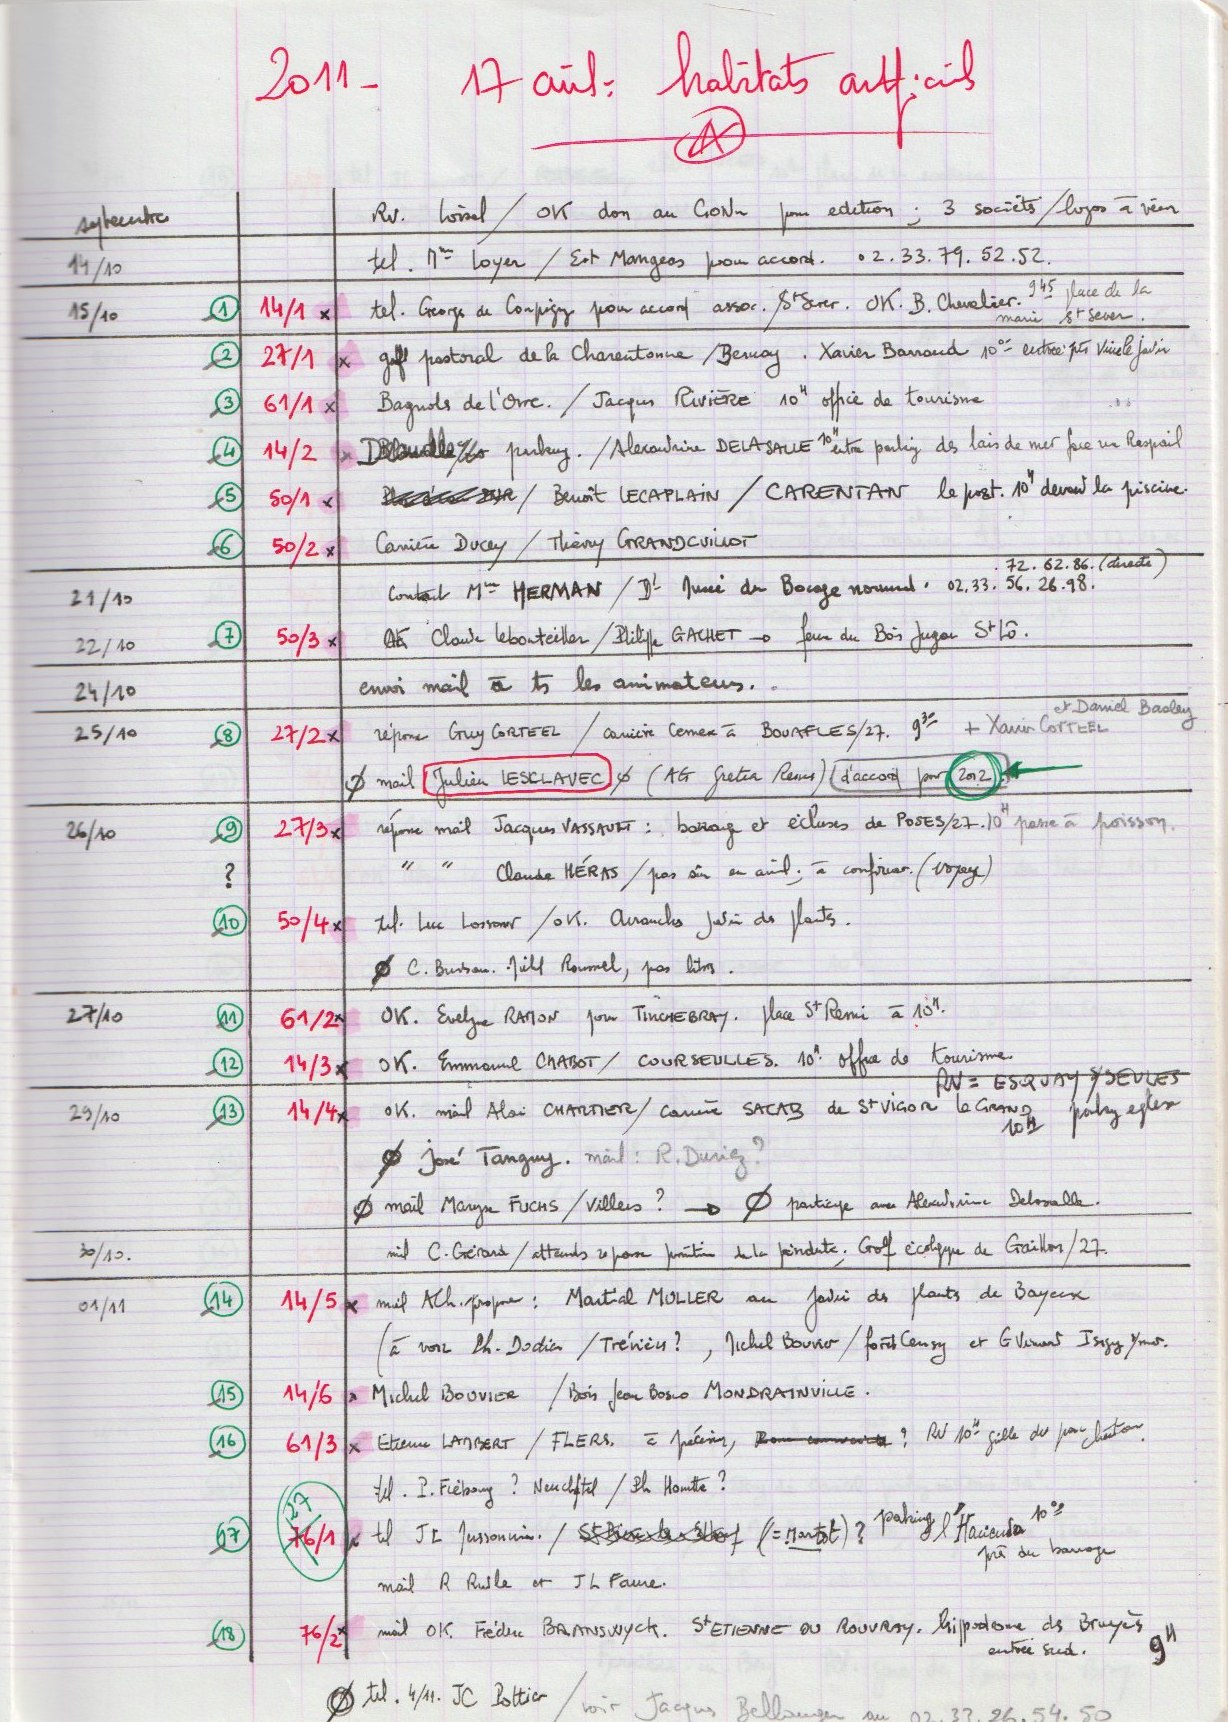 2011 - 17 avril : habitats artificiels
A
septembre RV. Loisel / OK don au GONm pour edition ; 3 sociétés / logos à venir
14/10 tel. Mme Loyer / Ect Mangeas pour accord. 02.33.79.52.52.
15/10 1 14/1 x tel. George de pour accord assoc. / St Sever. OK. B. Chevalier. 9 45 place de la
mairie St Sever.
2 27/1 x golf pastoral de la Charentonne / Bernay. Xavier Barraud 10
3 61/1 x Bagnols de l'Orne. / Jacques RIVIÈRE 10H office de tourisme
4 14/2 x parking. / Alexandrine DELASALLE 10H entre parking des lais de mer face
5 50/1 x / Benoît LECAPLAIN / CARENTAN le port. 10H devant la piscine.
6 50/2 x Carrière Ducey / Thierry GRANDGUILLOT
72.62.86. (directe)
21/10 Contact Mme HERMAN / Musée du Bocage normand. 02.33.56.26.98.
22/10 7 50/3 x Claude Lebouteiller / Philippe GACHET → ferme du Bois Jugan St Lô.
24/10 envoi mail à ts les animateurs..
et Daniel
25/10 8 27/2 x réponse Guy CORTEEL / carrière Cemex à BOUAFLES/27. 9 30 + Xavier CORTEEL
Ø mail Julien LESCLAVEC Ø (AG Gretia Rennes) d'accord pour 2012 ←
26/10 9 27/3 x réponse mail Jacques VASSAULT : barrage et écluses de POSES/27. 10H passe à poisson.
? " " Claude HÉRAS / pas sûr en avril ; à confirmer. (voyage)
10 50/4 x tel. Luc / OK. Avranches jardin des plantes.
Ø C. Buisson. Roussel, pas libres.
27/10 11 61/2 x OK. Evelyne RAMON pour TINCHEBRAY. place St Remi à 10H.
12 14/3 x OK. Emmanuel CHABOT / COURSEULLES. 10H office de tourisme
RV = ESQUAY S/SEULLES
29/10 13 14/4 x OK. mail Alain CHARTIER / carrière SACAB de St VIGOR le GRAND parking eglise
10H
Ø José Tanguy. mail : R. Duriez ?
Ø mail Maryse FUCHS / Villers ? → Ø partage avec Alexandrine Delasalle.
30/10. mail C. Gérard / attends reponse Golf écologique de Gaillon/27.
01/11 14 14/5 x mail propose : Martial MULLER au jardin des plantes de Bayeux
(à voir Ph. Dodier / Trévières ? , Michel Bouvier / forêt Cerisy et G Vimard Isigny s/mer.
15 14/6 x Michel BOUVIER / Bois Jean Bosco MONDRAINVILLE.
16 61/3 x Etienne LAMBERT / FLERS. à préciser, ? RV 10H grille du parc château.
tel. P. ? Neuchâtel / Ph Houtte ?
27
17 76/1 x tel JL / (= Martot) ? parking de l'Hacienda 10
près du barrage
mail R Rulle et JL Faure.
18 76/2 x mail OK. Fréderic BRANSWYCK. St ETIENNE DU ROUVRAY. hippodrome des Bruyères
entrée sud. 9H
Ø tel. 4/11. JC Pottier / voir Jacques Bellanger au 02.33.26.54.50